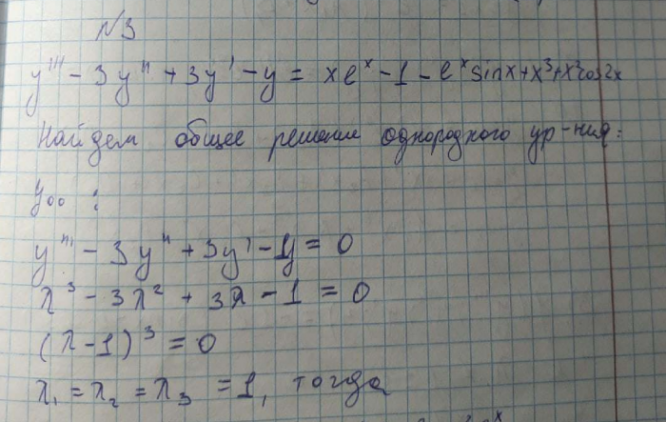 №3
y''' - 3y'' + 3y' - y = xe^x - 1 - e^x sinx + x^3 + x^2cos2x
Найдем общее решение однородного ур-ния:
yоо :
y''' - 3y'' + 3y' - y = 0
λ^3 - 3λ^2 + 3λ - 1 = 0
(λ - 1)^3 = 0
λ₁ = λ₂ = λ₃ = 1, тогда